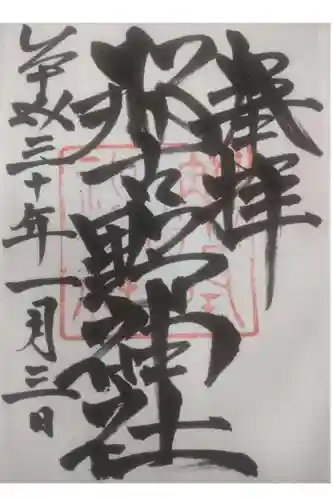 奉拝
披古野神社
平成三十年一月三日